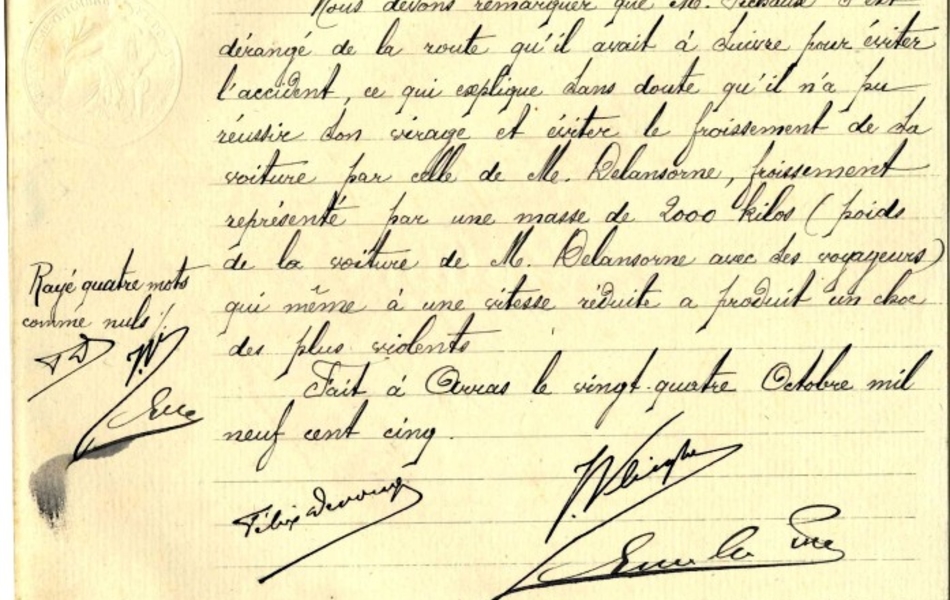 Nous devons remarquer que M. s'est
dérangé de la route qu'il avait à suivre pour éviter
l'accident, ce qui explique sans doute qu'il n'a pu
réussir son virage et éviter le froissement de sa
voiture par celle de M. Delansorne, froissement
représenté par une masse de 2000 kilos (poids
de la voiture de M. Delansorne avec ses voyageurs)
qui même à une vitesse réduite a produit un choc
des plus violents
Fait à Arras le vingt-quatre Octobre mil
neuf cent cinq.
Rayé quatre mots
comme nuls
Félix